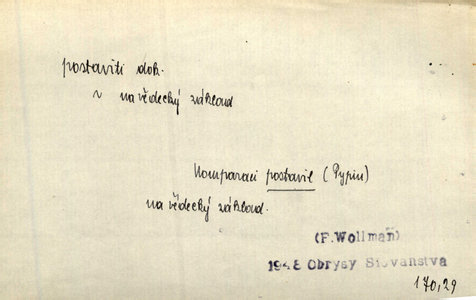 postaviti dok.
v na vědecký základ
Komparaci postavil (Pypin)
na vědecký základ.
(F. Wollman)
1948 Obrysy Slovanstva
170,29